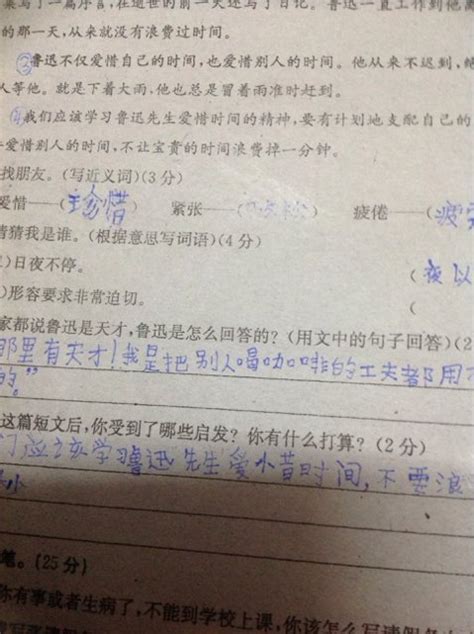 集写了一篇序言,在逝世的前一天还写了日记。鲁迅一直工作到他离
的那一天,从来就没有浪费过时间。
③鲁迅不仅爱惜自己的时间,也爱惜别人的时间。他从来不迟到,绝
人等他。就是下着大雨,他也总是冒着雨准时赶到。
④我们应该学习鲁迅先生爱惜时间的精神,要有计划地支配自己的
爱惜别人的时间,不让宝贵的时间浪费掉一分钟。
找朋友。(写近义词)(3分)
爱惜——(珍惜) 紧张——( ) 疲倦——(疲
猜猜我是谁。(根据意思写词语)(4分)
)日夜不停。 (夜以
)形容要求非常迫切。 (
家都说鲁迅是天才,鲁迅是怎么回答的?(用文中的句子回答)(2
那里有天才!我是把别人喝咖啡的工夫都用
的。”
这篇短文后,你受到了哪些启发?你有什么打算?(2分)
门应该学鲁迅先生爱惜时间,不要浪
笔。(25分)
你有事或者生病了,不能到学校上课,你该怎么写请假条